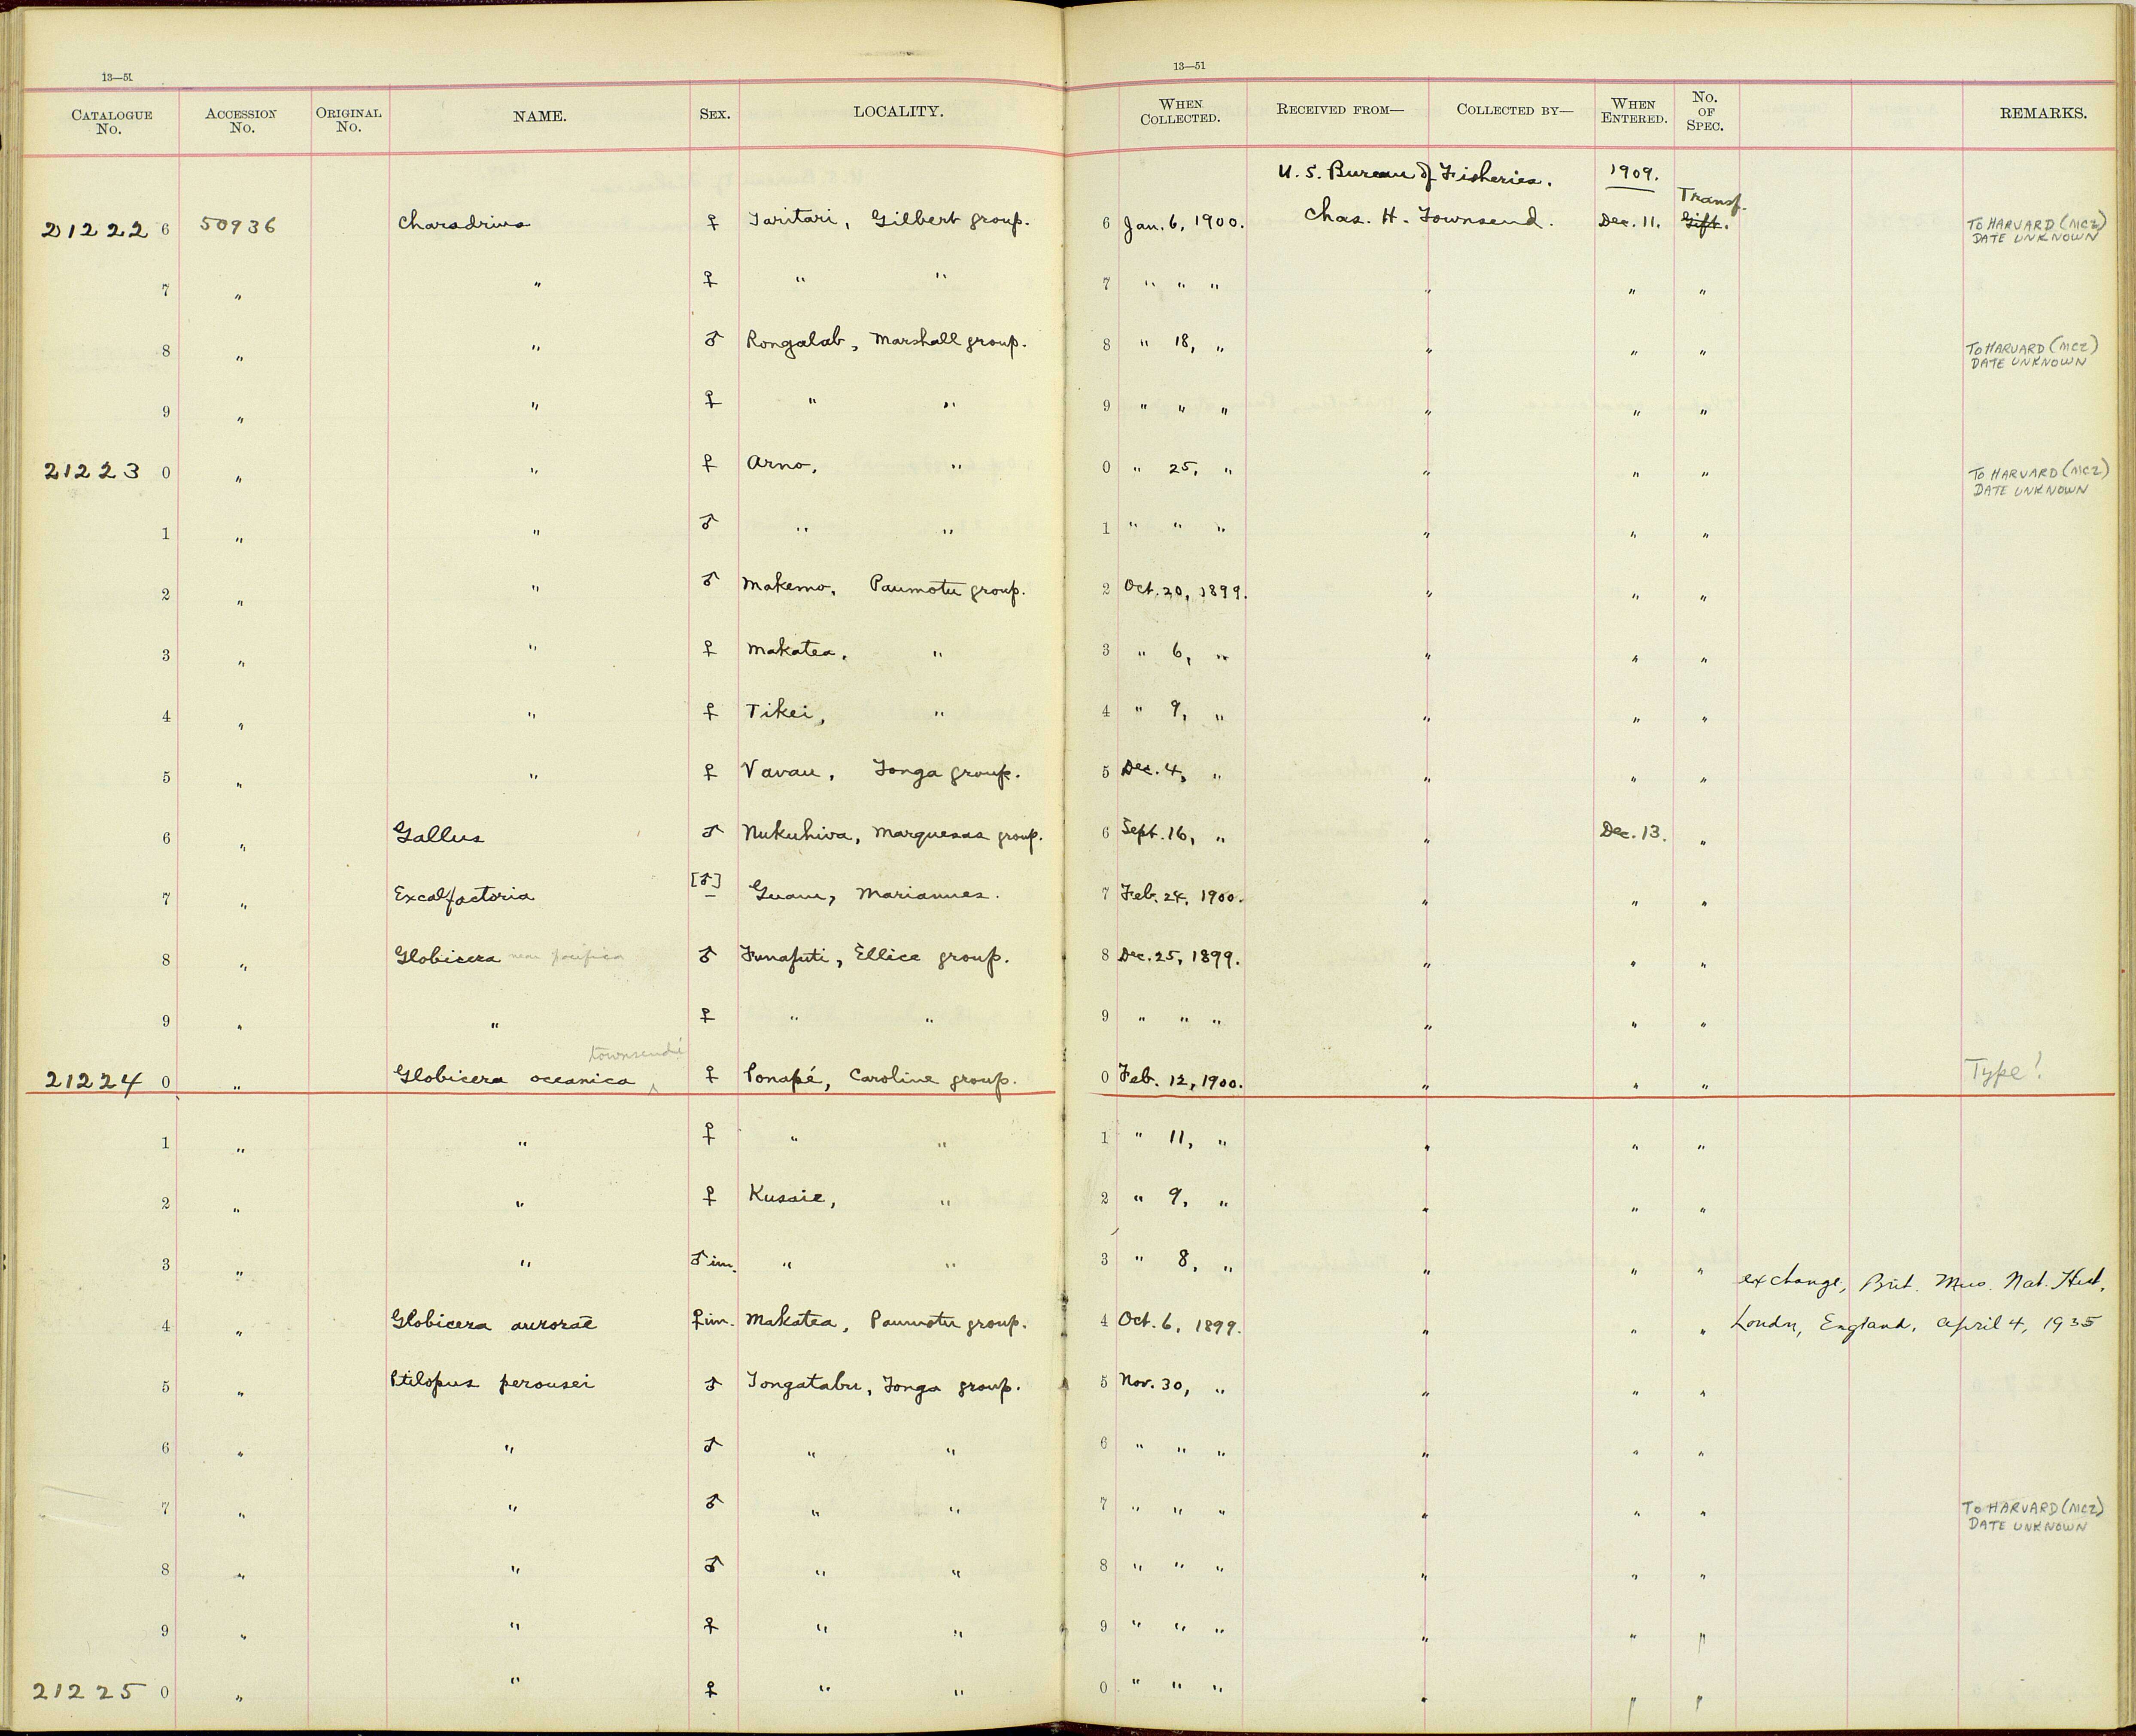 13—51
13—51
CATALOGUE No. ACCESSION No. ORIGINAL No. NAME. SEX. LOCALITY. WHEN COLLECTED. RECEIVED FROM— COLLECTED BY— WHEN ENTERED. No. OF SPEC. REMARKS.
U. S. Bureau of Fisheries. 1909.
Transf.
21222 6 50936 Charadrius ♀ Taritari, Gilbert group. 6 Jan. 6, 1900. Chas. H. Townsend. Dec. 11. Gift. TO HARVARD (MCZ) DATE UNKNOWN
7 " " ♀ " " 7 " " " " " "
8 " " ♂ Rongalab, Marshall group. 8 " 18, " " " " TO HARVARD (MCZ) DATE UNKNOWN
9 " " ♀ " " 9 " " " " " "
21223 0 " " ♀ Arno, " 0 " 25, " " " " TO HARVARD (MCZ) DATE UNKNOWN
1 " " ♂ " " 1 " " " " " "
2 " " ♂ Makemo, Paumotu group. 2 Oct. 20, 1899. " " "
3 " " ♀ Makatea, " 3 " 6, " " " "
4 " " ♀ Tikei, " 4 " 9, " " " "
5 " " ♀ Vavau, Tonga group. 5 Dec. 4, " " " "
6 " Gallus ♂ Nukuhiva, Marquesas group. 6 Sept. 16, " " Dec. 13. "
7 " Excalfactoria [♂] Guam, Mariannes. 7 Feb. 24, 1900. " " "
8 " Globicera near pacifica ♂ Funafuti, Ellice group. 8 Dec. 25, 1899. " " "
9 " " ♀ " " 9 " " " " " "
townsendi
21224 0 " Globicera oceanica ^ ♀ Ponapé, Caroline group. 0 Feb. 12, 1900. " " " Type!
1 " " ♀ " " 1 " 11, " " " "
2 " " ♀ Kusaie, " 2 " 9, " " " "
3 " " ♂ im. " " 3 " 8, " " " " exchange, Brit. Mus. Nat. Hist.,
4 " Globicera aurorae ♀ im. Makatea, Paumotu group. 4 Oct. 6, 1899. " " " London, England, April 4, 1935
5 " Ptilopus perousei ♂ Tongatabu, Tonga group. 5 Nov. 30, " " " "
6 " " ♂ " " 6 " " " " " "
7 " " ♂ " " 7 " " " " " " TO HARVARD (MCZ) DATE UNKNOWN
8 " " ♂ " " 8 " " " " " "
9 " " ♀ " " 9 " " " " " "
21225 0 " " ♀ " " 0 " " " " " "